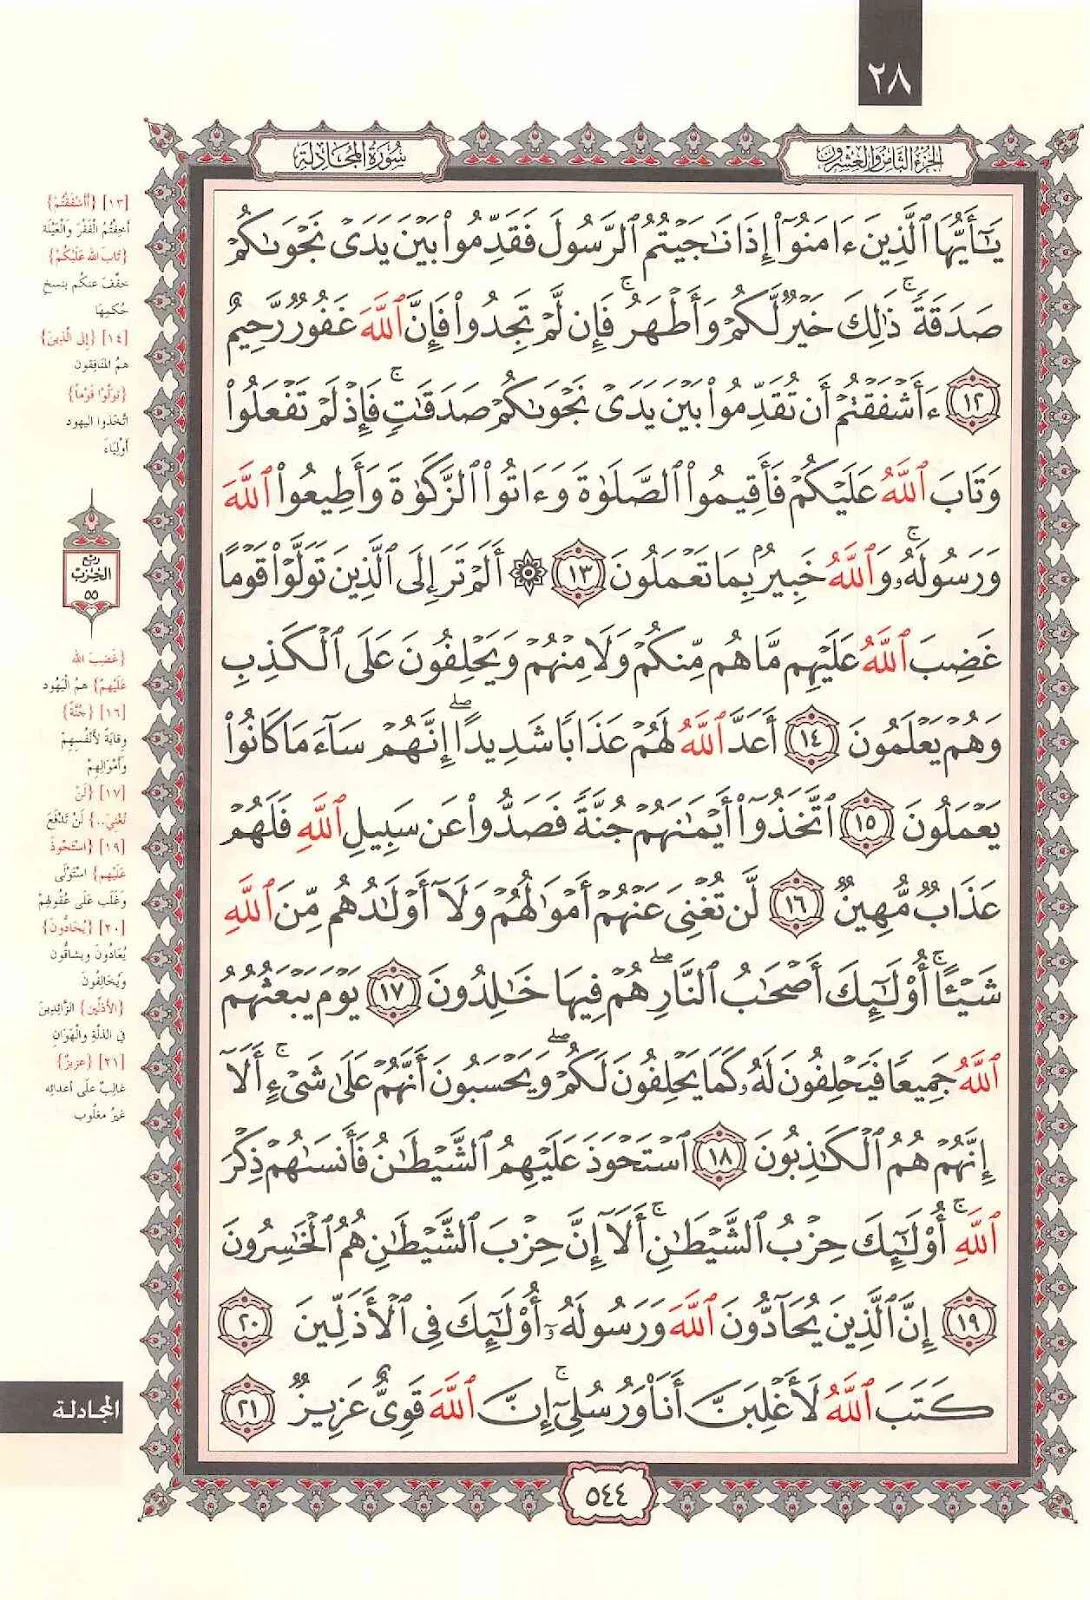 ٢٨
الجزء الثامن والعشرون
سورة المجادلة
يَٰٓأَيُّهَا ٱلَّذِينَ ءَامَنُوٓا۟ إِذَا نَٰجَيْتُمُ ٱلرَّسُولَ فَقَدِّمُوا۟ بَيْنَ يَدَىْ نَجْوَىٰكُمْ
صَدَقَةً ۚ ذَٰلِكَ خَيْرٌ لَّكُمْ وَأَطْهَرُ ۚ فَإِن لَّمْ تَجِدُوا۟ فَإِنَّ ٱللَّهَ غَفُورٌ رَّحِيمٌ
١٢ ءَأَشْفَقْتُمْ أَن تُقَدِّمُوا۟ بَيْنَ يَدَىْ نَجْوَىٰكُمْ صَدَقَٰتٍ ۚ فَإِذْ لَمْ تَفْعَلُوا۟
وَتَابَ ٱللَّهُ عَلَيْكُمْ فَأَقِيمُوا۟ ٱلصَّلَوٰةَ وَءَاتُوا۟ ٱلزَّكَوٰةَ وَأَطِيعُوا۟ ٱللَّهَ
وَرَسُولَهُۥ ۚ وَٱللَّهُ خَبِيرٌۢ بِمَا تَعْمَلُونَ ١٣ ۞ أَلَمْ تَرَ إِلَى ٱلَّذِينَ تَوَلَّوْا۟ قَوْمًا
غَضِبَ ٱللَّهُ عَلَيْهِم مَّا هُم مِّنكُمْ وَلَا مِنْهُمْ وَيَحْلِفُونَ عَلَى ٱلْكَذِبِ
وَهُمْ يَعْلَمُونَ ١٤ أَعَدَّ ٱللَّهُ لَهُمْ عَذَابًا شَدِيدًا ۖ إِنَّهُمْ سَآءَ مَا كَانُوا۟
يَعْمَلُونَ ١٥ ٱتَّخَذُوٓا۟ أَيْمَٰنَهُمْ جُنَّةً فَصَدُّوا۟ عَن سَبِيلِ ٱللَّهِ فَلَهُمْ
عَذَابٌ مُّهِينٌ ١٦ لَّن تُغْنِىَ عَنْهُمْ أَمْوَٰلُهُمْ وَلَآ أَوْلَٰدُهُم مِّنَ ٱللَّهِ
شَيْـًٔا ۚ أُو۟لَٰٓئِكَ أَصْحَٰبُ ٱلنَّارِ ۖ هُمْ فِيهَا خَٰلِدُونَ ١٧ يَوْمَ يَبْعَثُهُمُ
ٱللَّهُ جَمِيعًا فَيَحْلِفُونَ لَهُۥ كَمَا يَحْلِفُونَ لَكُمْ ۖ وَيَحْسَبُونَ أَنَّهُمْ عَلَىٰ شَىْءٍ ۚ أَلَآ
إِنَّهُمْ هُمُ ٱلْكَٰذِبُونَ ١٨ ٱسْتَحْوَذَ عَلَيْهِمُ ٱلشَّيْطَٰنُ فَأَنسَىٰهُمْ ذِكْرَ
ٱللَّهِ ۚ أُو۟لَٰٓئِكَ حِزْبُ ٱلشَّيْطَٰنِ ۚ أَلَآ إِنَّ حِزْبَ ٱلشَّيْطَٰنِ هُمُ ٱلْخَٰسِرُونَ
١٩ إِنَّ ٱلَّذِينَ يُحَآدُّونَ ٱللَّهَ وَرَسُولَهُۥٓ أُو۟لَٰٓئِكَ فِى ٱلْأَذَلِّينَ ٢٠
كَتَبَ ٱللَّهُ لَأَغْلِبَنَّ أَنَا۠ وَرُسُلِىٓ ۚ إِنَّ ٱللَّهَ قَوِىٌّ عَزِيزٌ ٢١
٥٤٤
[١٣] {أَأَشْفَقْتُمْ}
أَخِفْتُمُ الْفَقْرَ وَالْعَيْلَة
{تَابَ الله عَلَيْكُمْ}
خفَّفَ عنكُم بنسخِ
حُكمِهَا
[١٤] {إلى الَّذِينَ}
همُ المنَافِقون
{تَوَلَّوْا قَوْمًا}
اتَّخَذوا اليهود
أَوْلِيَاءَ
ربع
الحزب
٥٥
{غَضِبَ الله
عَلَيْهِمْ} همُ الْيَهُود
[١٦] {جُنَّةً}
وِقَايَةً لأَنْفُسِهِمْ
وَأَمْوَالِهِمْ
[١٧] {لَنْ
تُغْنِيَ..} لَنْ تَدْفَعَ
[١٩] {اسْتَحْوَذَ
عَلَيْهِم} اسْتَوْلَى
وغَلَب عَلَى عُقُولِهِمْ
[٢٠] {يُحَادُّونَ}
يُعَادُونَ ويشاقُّون
وَيُخَالِفُونَ
{الأَذَلِّينَ} الزَّائِدِينَ
فِي الذلَّةِ والْهَوَانِ
[٢١] {عزيزٌ}
غالبٌ عَلَى أعدائِه
غيرُ مغلُوب
المجادلة